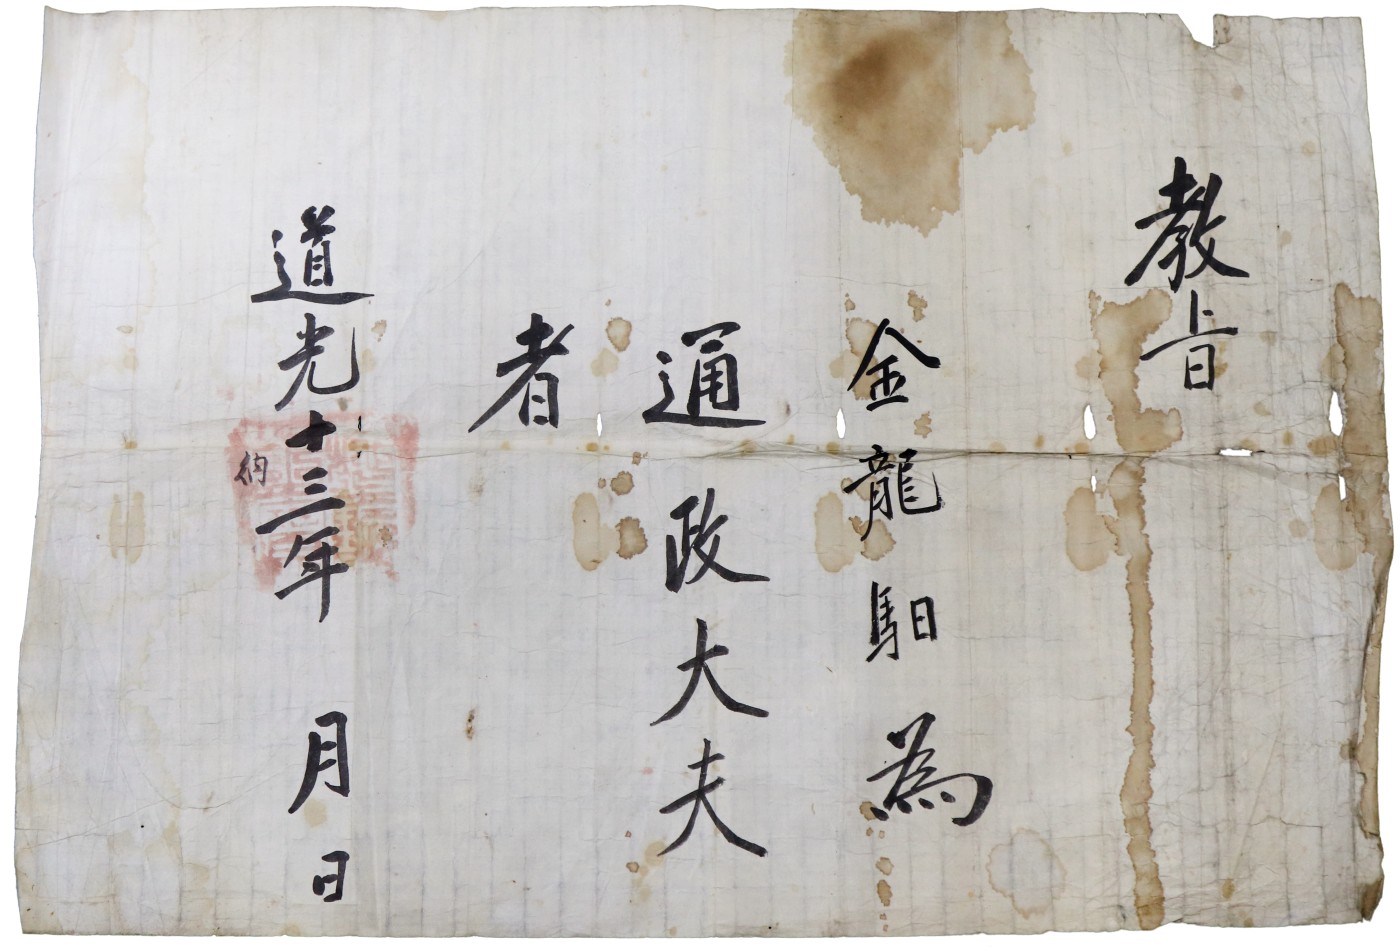 教旨
金龍馹為
通政大夫
者
道光十三年 月 日
納